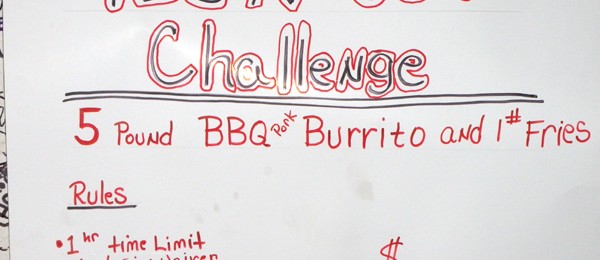 Challenge
5 Pound BBQ Pork Burrito and 1# Fries
Rules
• 1 hr time Limit
$